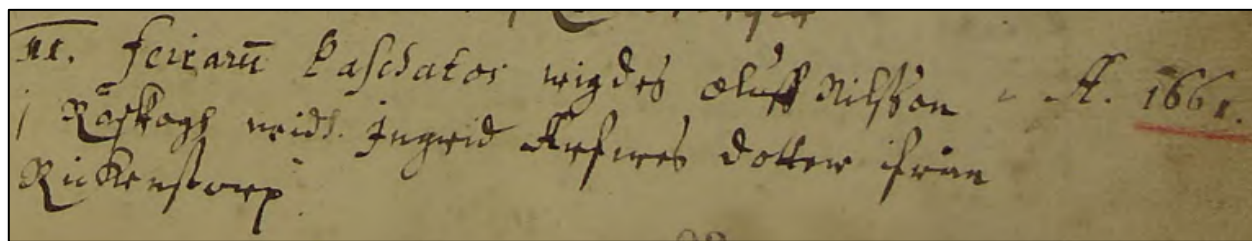 III. feriarū Paschatos wigdes Oluff Nilsson A. 1661.
i Råskogh widh Ingrid Arfwes dotter ifrån
Rickenstorp